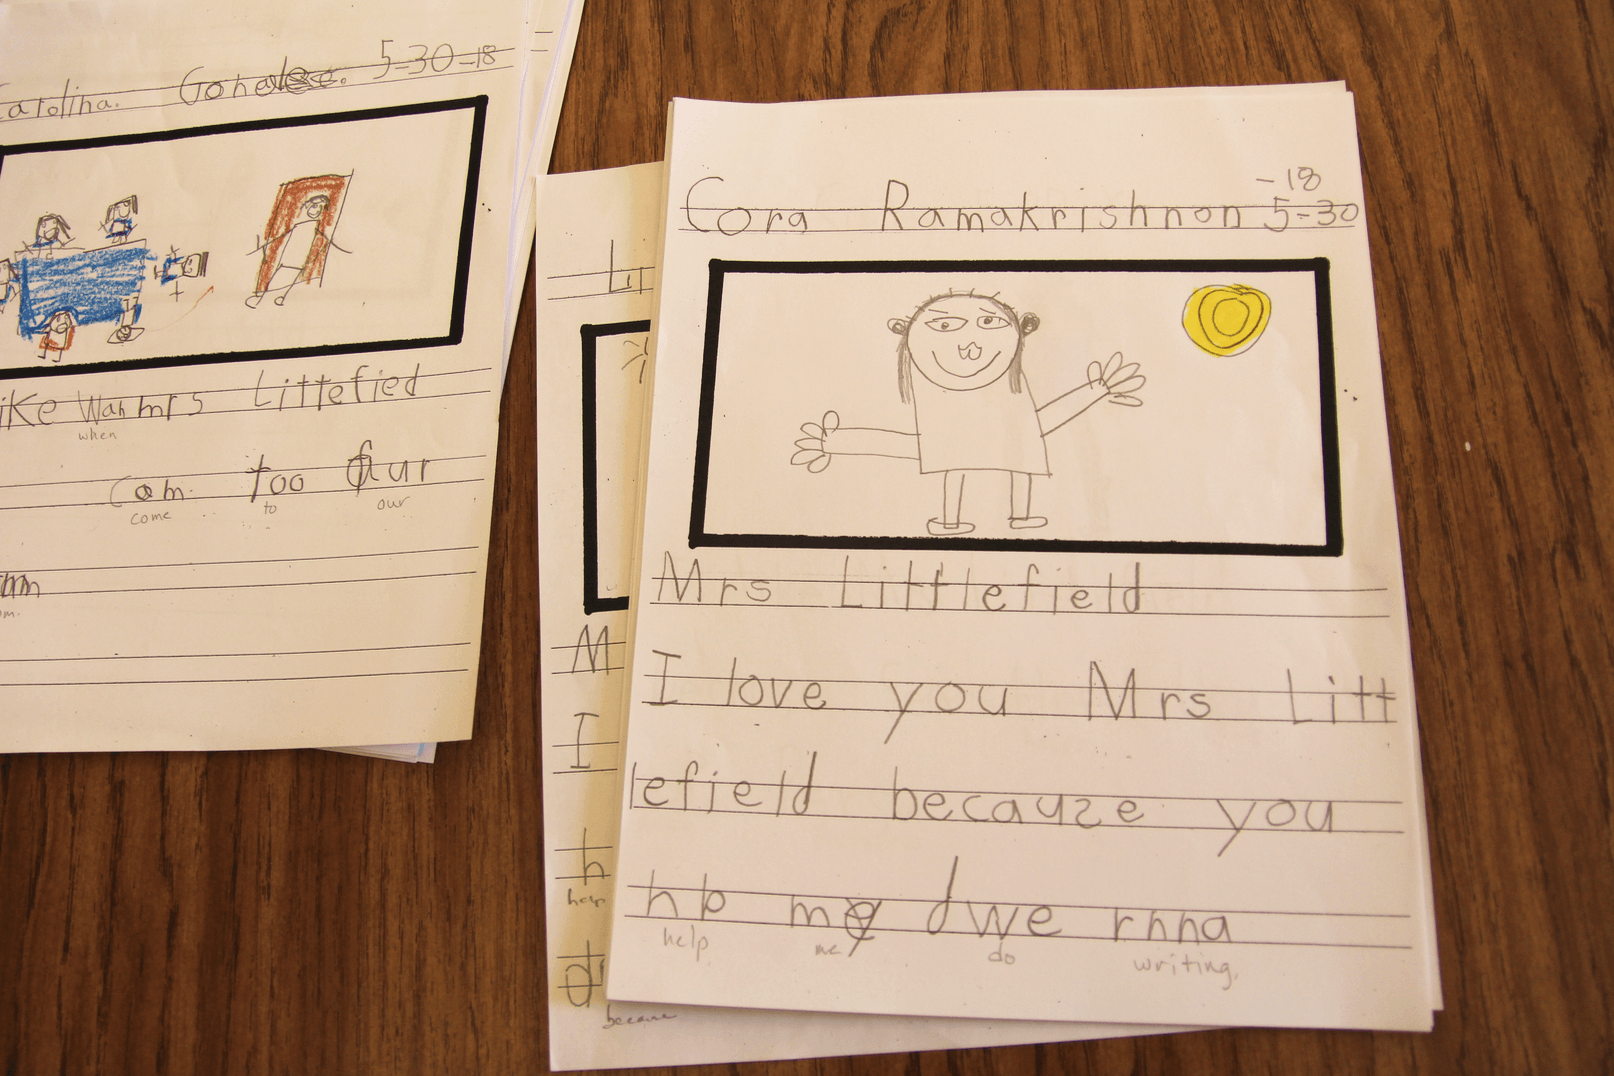 Carolina. 5-30-18
iKe Wah mrs Littefied
when
Com. too Our
come to our
Cora Ramakrishnon 5-30
-18
Mrs Littlefield
I love you Mrs Litt
lefield becauze you
h b me dwe rnna
help me do writing.
Li
M
I
h
help
because